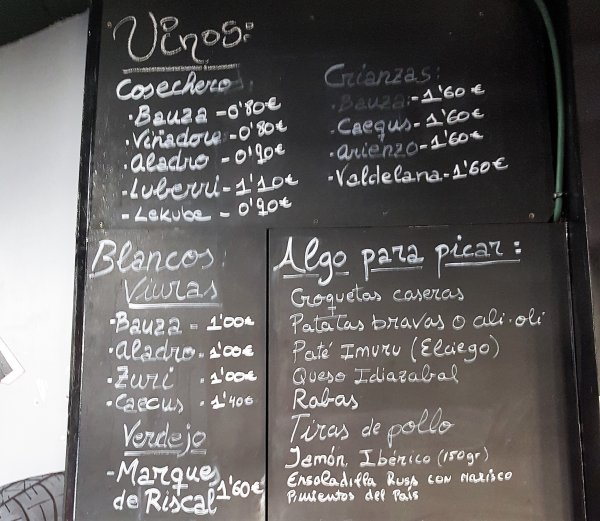 Vinos:
Cosechero:
• Bauza - 0'80€
• Viñadore - 0'80€
• Aladro - 0'90€
• Luberri - 1'10€
- Lekube - 0'90€
Crianzas:
• Bauza - 1'60€
Caecus - 1'60€
• Arienzo - 1'60€
• Valdelana - 1'60€
Blancos:
Viuras
• Bauza = 1'00€
• Aladro - 1'00€
• Zuri - 1'00€
• Caecus - 1'40€
Verdejo
- Marques
de Riscal 1'60€
Algo para picar:
Croquetas caseras
Patatas bravas o ali-oli
Paté Imuru (Elciego)
Queso Idiazabal
Rabas
Tiras de pollo
Jamón Ibérico (150gr)
Ensaladilla Rusa con marisco
Pimientos del País